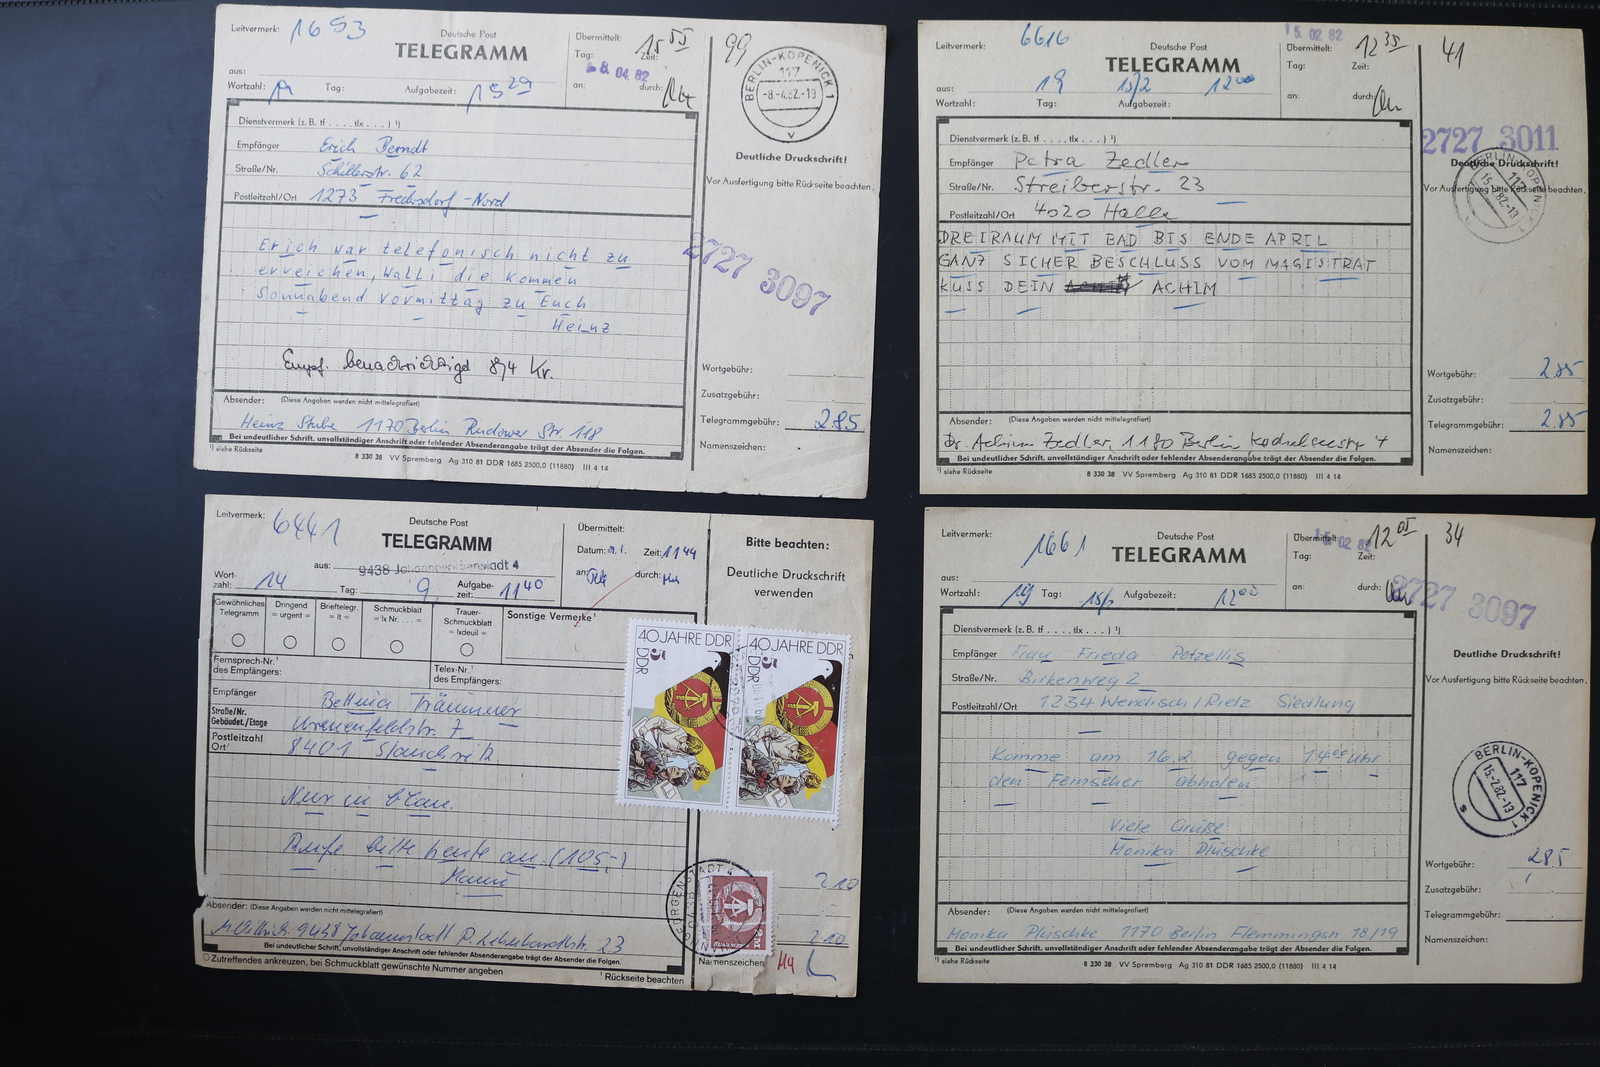 Leitvermerk: 1653
Deutsche Post
TELEGRAMM
aus:
Wortzahl: Tag: Aufgabezeit: 15 29
Übermittelt:
Tag: Zeit: 15 55
-8. 04. 82
an: durch:
99
BERLIN-KÖPENICK 1
117
-8.-4.82.-19
v
Dienstvermerk (z. B. tf . . . . tlx . . . ) ¹)
Empfänger Erich Berndt
Straße/Nr. Schillerstr. 62
Postleitzahl/Ort 1273 Fredersdorf - Nord
Deutliche Druckschrift!
Vor Ausfertigung bitte Rückseite beachten.
Erich war telefonisch nicht zu
erreichen, Walli die kommen
Sonnabend Vormittag zu Euch
Heinz
2727 3097
Empf. benachrichtigt 8/4 Kr.
Wortgebühr:
Zusatzgebühr:
Telegrammgebühr: 2.85
Namenszeichen:
Absender: (Diese Angaben werden nicht mittelegrafiert)
Heinz Stube 1170 Berlin Rudower Str. 118
Bei undeutlicher Schrift, unvollständiger Anschrift oder fehlender Absenderangabe trägt der Absender die Folgen.
¹) siehe Rückseite
8 330 38 VV Spremberg Ag 310 81 DDR 1685 2500,0 (11880) III 4 14
Leitvermerk: 6616
Deutsche Post
TELEGRAMM
aus: 19 15/2 12 00
Wortzahl: Tag: Aufgabezeit:
15. 02. 82
Übermittelt: 12 35
Tag: Zeit:
an: durch:
41
2727 3011
BERLIN-KÖPENICK 1
117
15.-2.82.-13
Dienstvermerk (z. B. tf . . . . tlx . . . ) ¹)
Empfänger Petra Zedler
Straße/Nr. Streiberstr. 23
Postleitzahl/Ort 4020 Halle
Deutliche Druckschrift!
Vor Ausfertigung bitte Rückseite beachten.
DREIRAUM MIT BAD BIS ENDE APRIL
GANZ SICHER BESCHLUSS VOM MAGISTRAT
KUSS DEIN ACHIM
Wortgebühr: 2.85
Zusatzgebühr:
Telegrammgebühr: 2.85
Namenszeichen:
Absender: (Diese Angaben werden nicht mittelegrafiert)
Dr. Achim Zedler, 1180 Berlin
Bei undeutlicher Schrift, unvollständiger Anschrift oder fehlender Absenderangabe trägt der Absender die Folgen.
¹) siehe Rückseite
8 330 38 VV Spremberg Ag 310 81 DDR 1685 2500,0 (11880) III 4 14
Leitvermerk: 6441
Deutsche Post
TELEGRAMM
aus: 9438 Johanngeorgenstadt 4
Wort-
zahl: 14 Tag: 9. Aufgabe-
zeit: 11 40
Übermittelt:
Datum: 9.1. Zeit: 11 44
an: durch:
Bitte beachten:
Deutliche Druckschrift
verwenden
Gewöhnliches
Telegramm
Dringend
= urgent =
Brieftelegr.
= lt =
Schmuckblatt
= lx Nr. . . . . =
Trauer-
Schmuckblatt
= lxdeuil =
Sonstige Vermerke¹
Fernsprech-Nr.¹
des Empfängers:
Telex-Nr.¹
des Empfängers:
Empfänger Bettina Trämmer
Straße/Nr.
Gebäudet./Etage
Postleitzahl
Ort¹ 8401
40 JAHRE DDR
5
DDR
40 JAHRE DDR
5
DDR
Nur in blau.
Rufe bitte heute an. (105,-)
Mami
2 10
2 10
Absender: (Diese Angaben werden nicht mittelegrafiert)
23
Bei undeutlicher Schrift, unvollständiger Anschrift oder fehlender Absenderangabe trägt der Absender die Folgen.
Zutreffendes ankreuzen, bei Schmuckblatt gewünschte Nummer angeben
Namenszeichen
¹ Rückseite beachten
Leitvermerk: 1661
Deutsche Post
TELEGRAMM
aus:
Wortzahl: 19 Tag: 15/2 Aufgabezeit: 12 00
Übermittelt: 12 05
15. 02. 82
Tag: Zeit:
an: durch:
34
2727 3097
Dienstvermerk (z. B. tf . . . . tlx . . . ) ¹)
Empfänger Frau Frieda Potzellis
Straße/Nr. Birkenweg 2
Postleitzahl/Ort 1234 Wendisch / Rietz Siedlung
Deutliche Druckschrift!
Vor Ausfertigung bitte Rückseite beachten.
Komme am 16.2. gegen 14 00 Uhr
den Fernseher abholen
Viele Grüße
Monika Plüschke
BERLIN-KÖPENICK 1
117
15.-2.82.-13
s
Wortgebühr: 285
Zusatzgebühr:
Telegrammgebühr:
Namenszeichen:
Absender: (Diese Angaben werden nicht mittelegrafiert)
Monika Plüschke 1170 Berlin Flemmingstr 18/19
Bei undeutlicher Schrift, unvollständiger Anschrift oder fehlender Absenderangabe trägt der Absender die Folgen.
¹) siehe Rückseite
8 330 38 VV Spremberg Ag 310 81 DDR 1685 2500,0 (11880) III 4 14